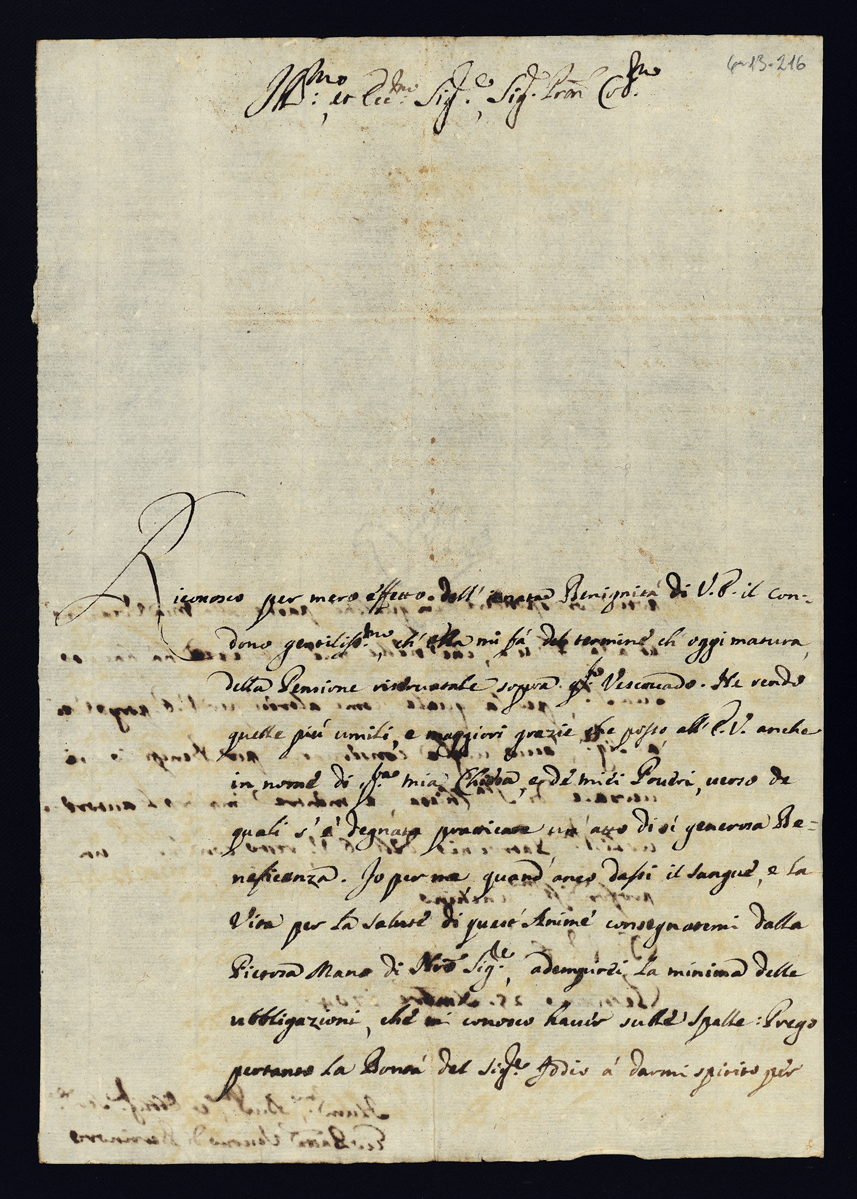 6-13-216
Ill:mo, et Ecc:mo Sig:re, Sig:re Pron Col:mo
Riconosco per mero effetto dell' innata Benignità di V.E. il con=
dono gentiliss:mo, ch'ella mi fà del termine ch'oggi matura,
della Pensione riseruatale sopra q:sto Vescouado. Ne rendo
quelle più umili, e maggiori grazie che posso all' E.V. anche
in nome di q:sta mia Chiesa, e de miei Poueri, uerso de
quali s'è degnata praticare un' atto di sì generosa Be=
neficenza. Io per me quand' anco dassi il sangue, e la
Vita per la salute di quest' Anime consegnatemi dalla
Pietosa Mano di Nro Sig:re, adempirei la minima delle
ubbligazioni, che mi conosco hauer sulle Spalle: Prego
pertanto la Bontà del Sig:re Iddio à darmi spirito per